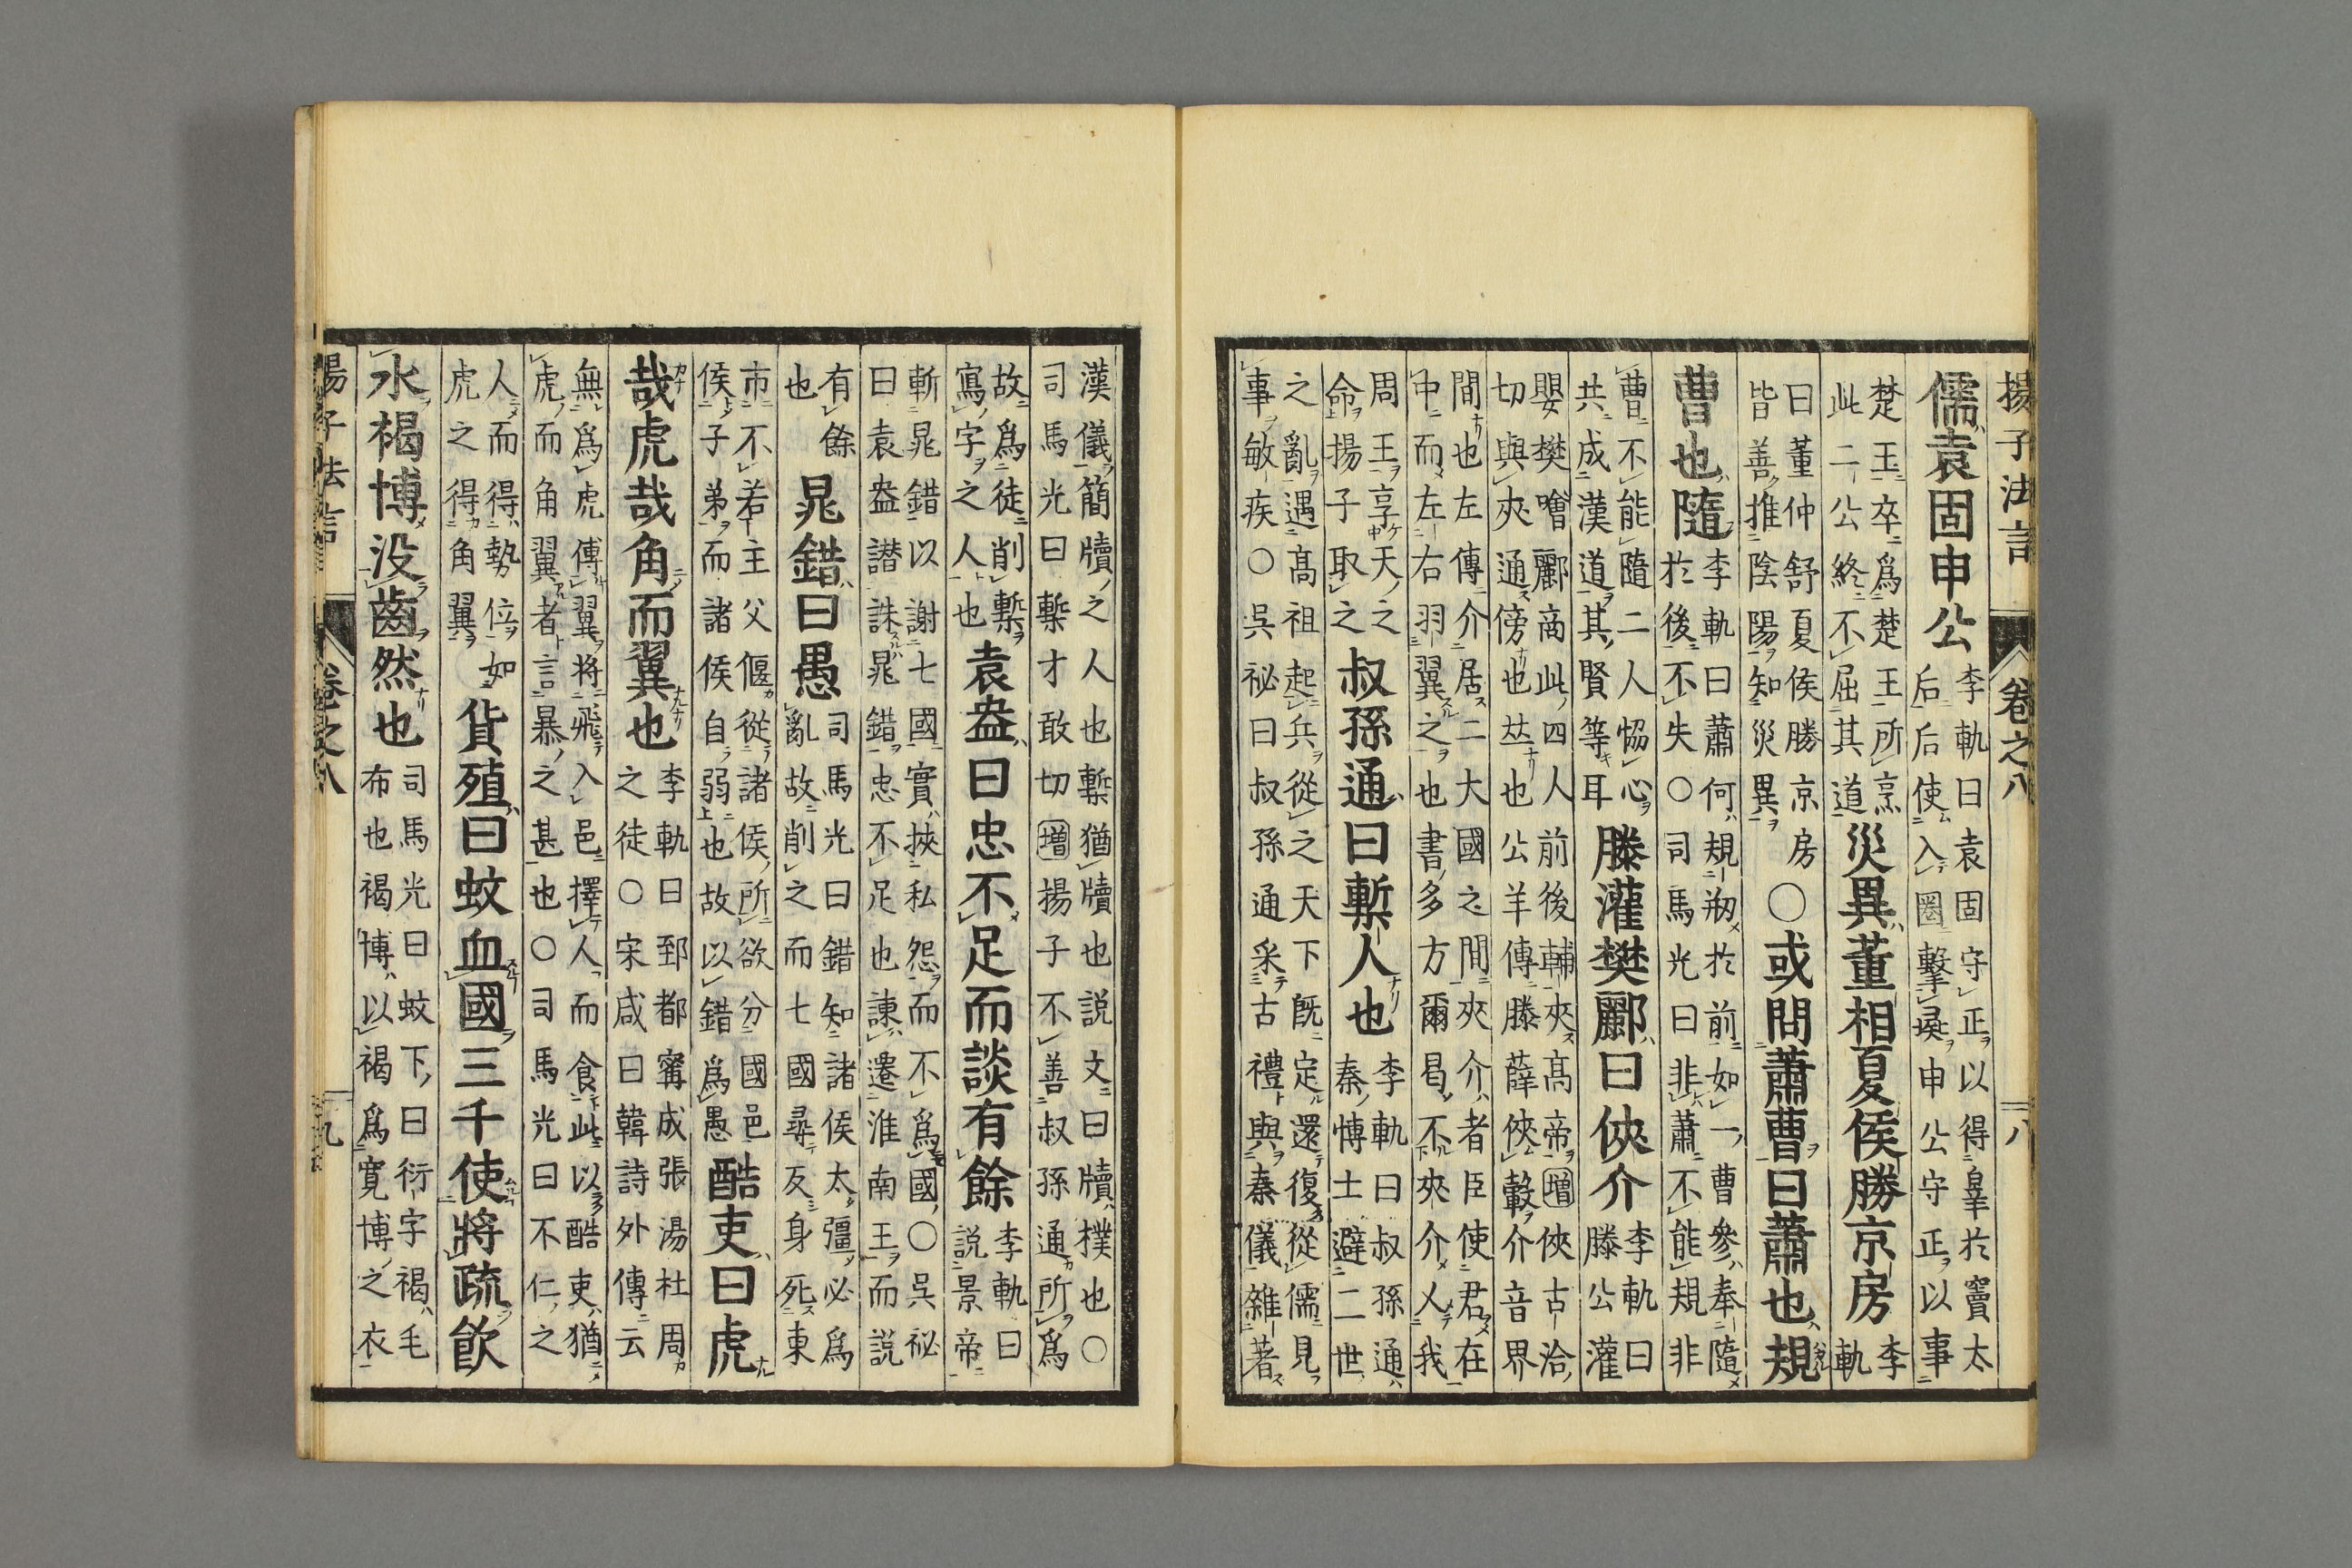 揚子法言　卷之八　八
儒袁固申公
李軌曰袁固守正以得辠於竇太
后后使入圈擊彘申公守正以事
楚王卒爲楚王所烹
此二公終不屈其道
災異董相夏侯勝京房
李
軌
曰董仲舒夏侯勝京房
皆善推陰陽知災異
○或問蕭曹曰蕭也規
曹也隨
李軌曰蕭何規剏於前如一曹參奉隨
於後不失○司馬光曰非蕭不能規非
曹不能隨二人恊心
共成漢道其賢等耳
滕灌樊酈曰俠介
李軌曰
滕公灌
嬰樊噲酈商此四人前後輔夾髙帝增俠古洽
切與夾通傍也丛也公羊傳滕薛俠轂介音界
間也左傳介居二大國之間夾介者臣使君在
中而左右羽翼之也書多方爾曷不夾介乂我
周王享天之
命揚子取之
叔孫通曰槧人也
李軌曰叔孫通
秦博士避二世
之亂遇髙祖起兵從之天下既定還復從儒見
事敏疾○吳祕曰叔孫通采古禮與秦儀雜著
漢儀簡牘之人也槧猶牘也説文曰牘樸也○
司馬光曰槧才敢切增揚子不善叔孫通所爲
故爲徒削槧
寫字之人也
袁盎曰忠不足而談有餘
李軌曰
説景帝
斬晁錯以謝七國實挾私怨而不爲國○吳祕
曰袁盎譖誅晁錯忠不足也諫遷淮南王而説
有餘
也
晁錯曰愚
司馬光曰錯知諸侯太彊必爲
亂故削之而七國尋反身死東
市不若主父偃從諸侯所欲分國邑
侯子弟而諸侯自弱也故以錯爲愚
酷吏曰虎
哉虎哉角而翼也
李軌曰郅都甯成張湯杜周
之徒○宋咸曰韓詩外傳云
無爲虎傅翼将飛入邑擇人而食此以酷吏猶
虎而角翼者言暴之甚也○司馬光曰不仁之
人而得勢位如
虎之得角翼
貨殖曰蚊血國三千使將疏飮
水褐博没齒然也
司馬光曰蚊下曰衍字褐毛
布也褐博以褐爲寛博之衣
揚子法言　卷之八　九